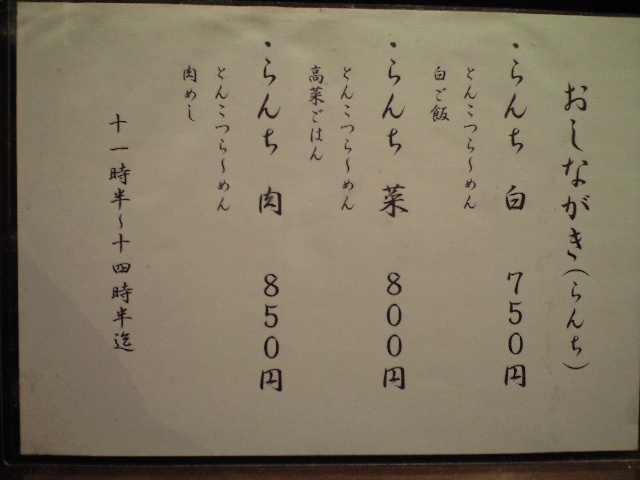 おしながき(らんち)
・らんち 白 750円
とんこつら〜めん
白ご飯
・らんち 菜 800円
とんこつら〜めん
高菜ごはん
・らんち 肉 850円
とんこつら〜めん
肉めし
十一時半〜十四時半迄